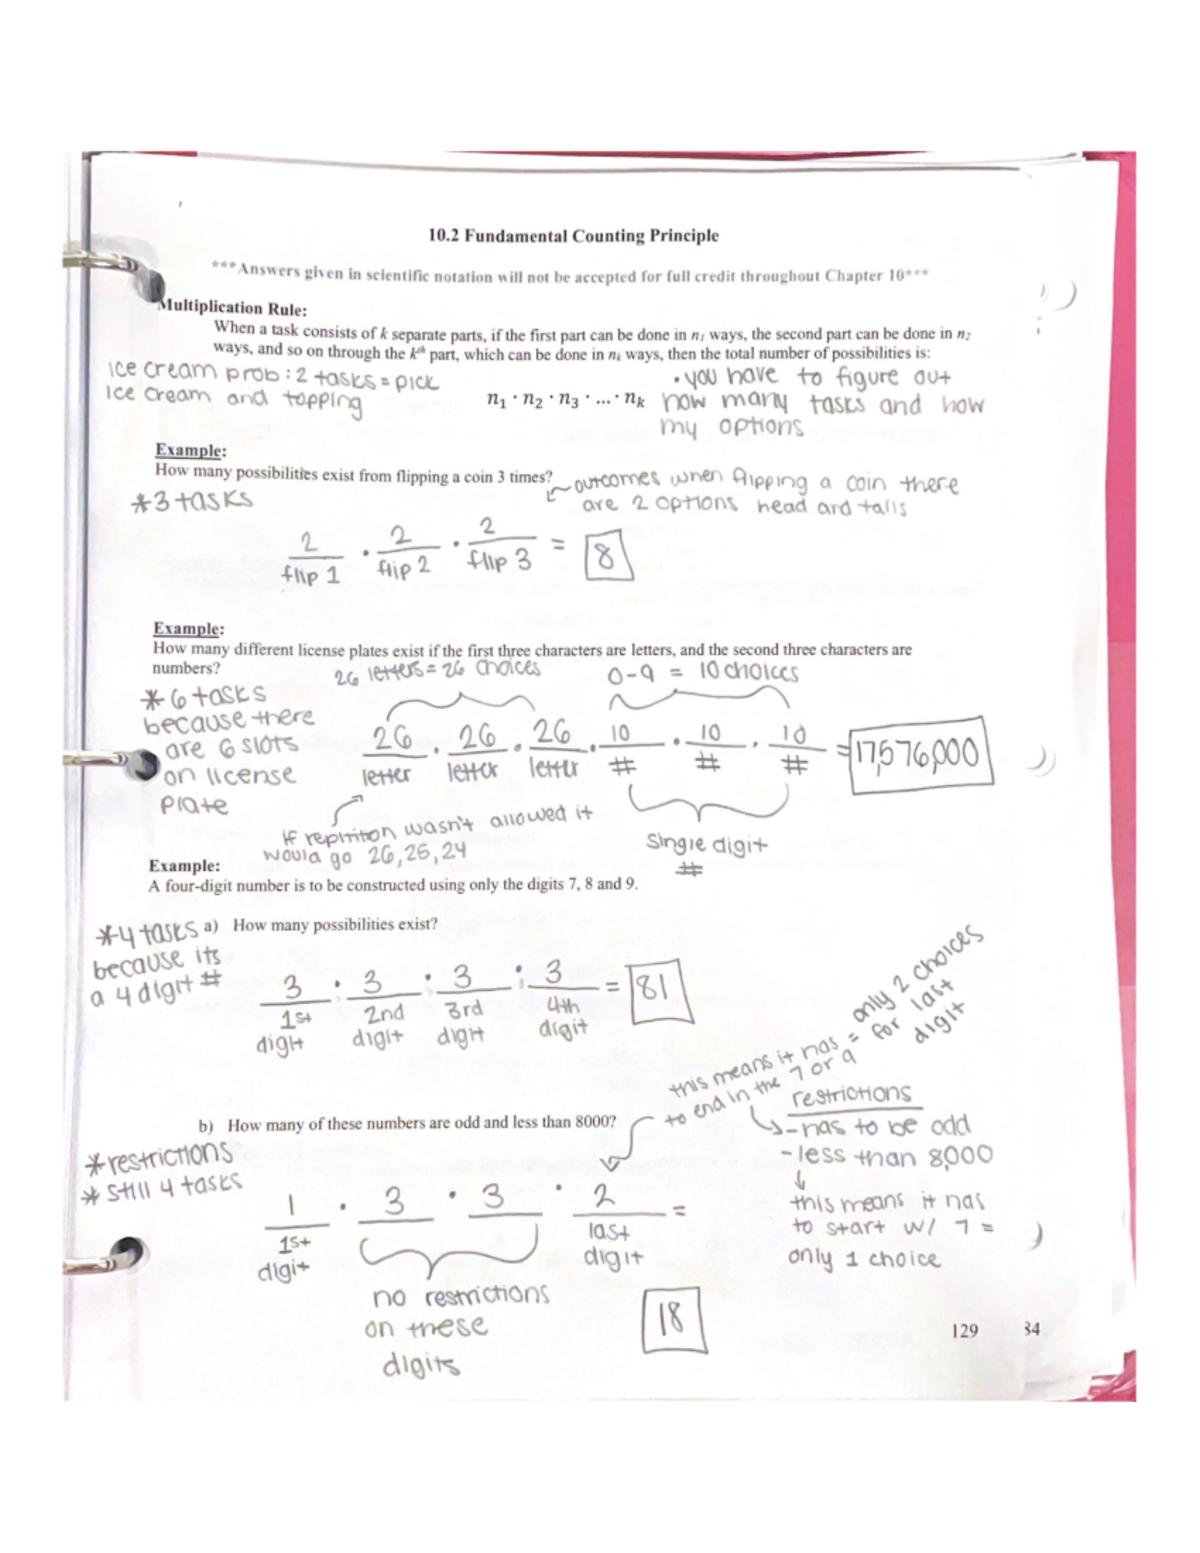 10.2 Fundamental Counting Principle
***Answers given in scientific notation will not be accepted for full credit throughout Chapter 10***
Multiplication Rule:
When a task consists of k separate parts, if the first part can be done in n₁ ways, the second part can be done in n₂
ways, and so on through the kᵗʰ part, which can be done in nₖ ways, then the total number of possibilities is:
ice cream prob: 2 tasks = pick
ice cream and topping
n₁ · n₂ · n₃ · ... · nₖ
• you have to figure out
how many tasks and how
my options
Example:
How many possibilities exist from flipping a coin 3 times?
outcomes when flipping a coin there
are 2 options head and tails
*3 tasks
2 · 2 · 2 = 8
flip 1 flip 2 flip 3
Example:
How many different license plates exist if the first three characters are letters, and the second three characters are
numbers?
26 letters = 26 choices
0-9 = 10 choices
* 6 tasks
because there
are 6 slots
on license
plate
26 · 26 · 26 · 10 · 10 · 10 = 17,576,000
letter letter letter # # #
if repitition wasn't allowed it
would go 26, 25, 24
single digit
#
Example:
A four-digit number is to be constructed using only the digits 7, 8 and 9.
*4 tasks
because its
a 4 digit #
a) How many possibilities exist?
3 · 3 · 3 · 3 = 81
1st 2nd 3rd 4th
digit digit digit digit
this means it has
to end in the 7 or 9
= only 2 choices
for last
digit
b) How many of these numbers are odd and less than 8000?
restrictions
- has to be odd
- less than 8,000
this means it has
to start w/ 7 =
only 1 choice
*restrictions
* still 4 tasks
1 · 3 · 3 · 2 =
1st last
digit digit
no restrictions
on these
digits
18
129 34